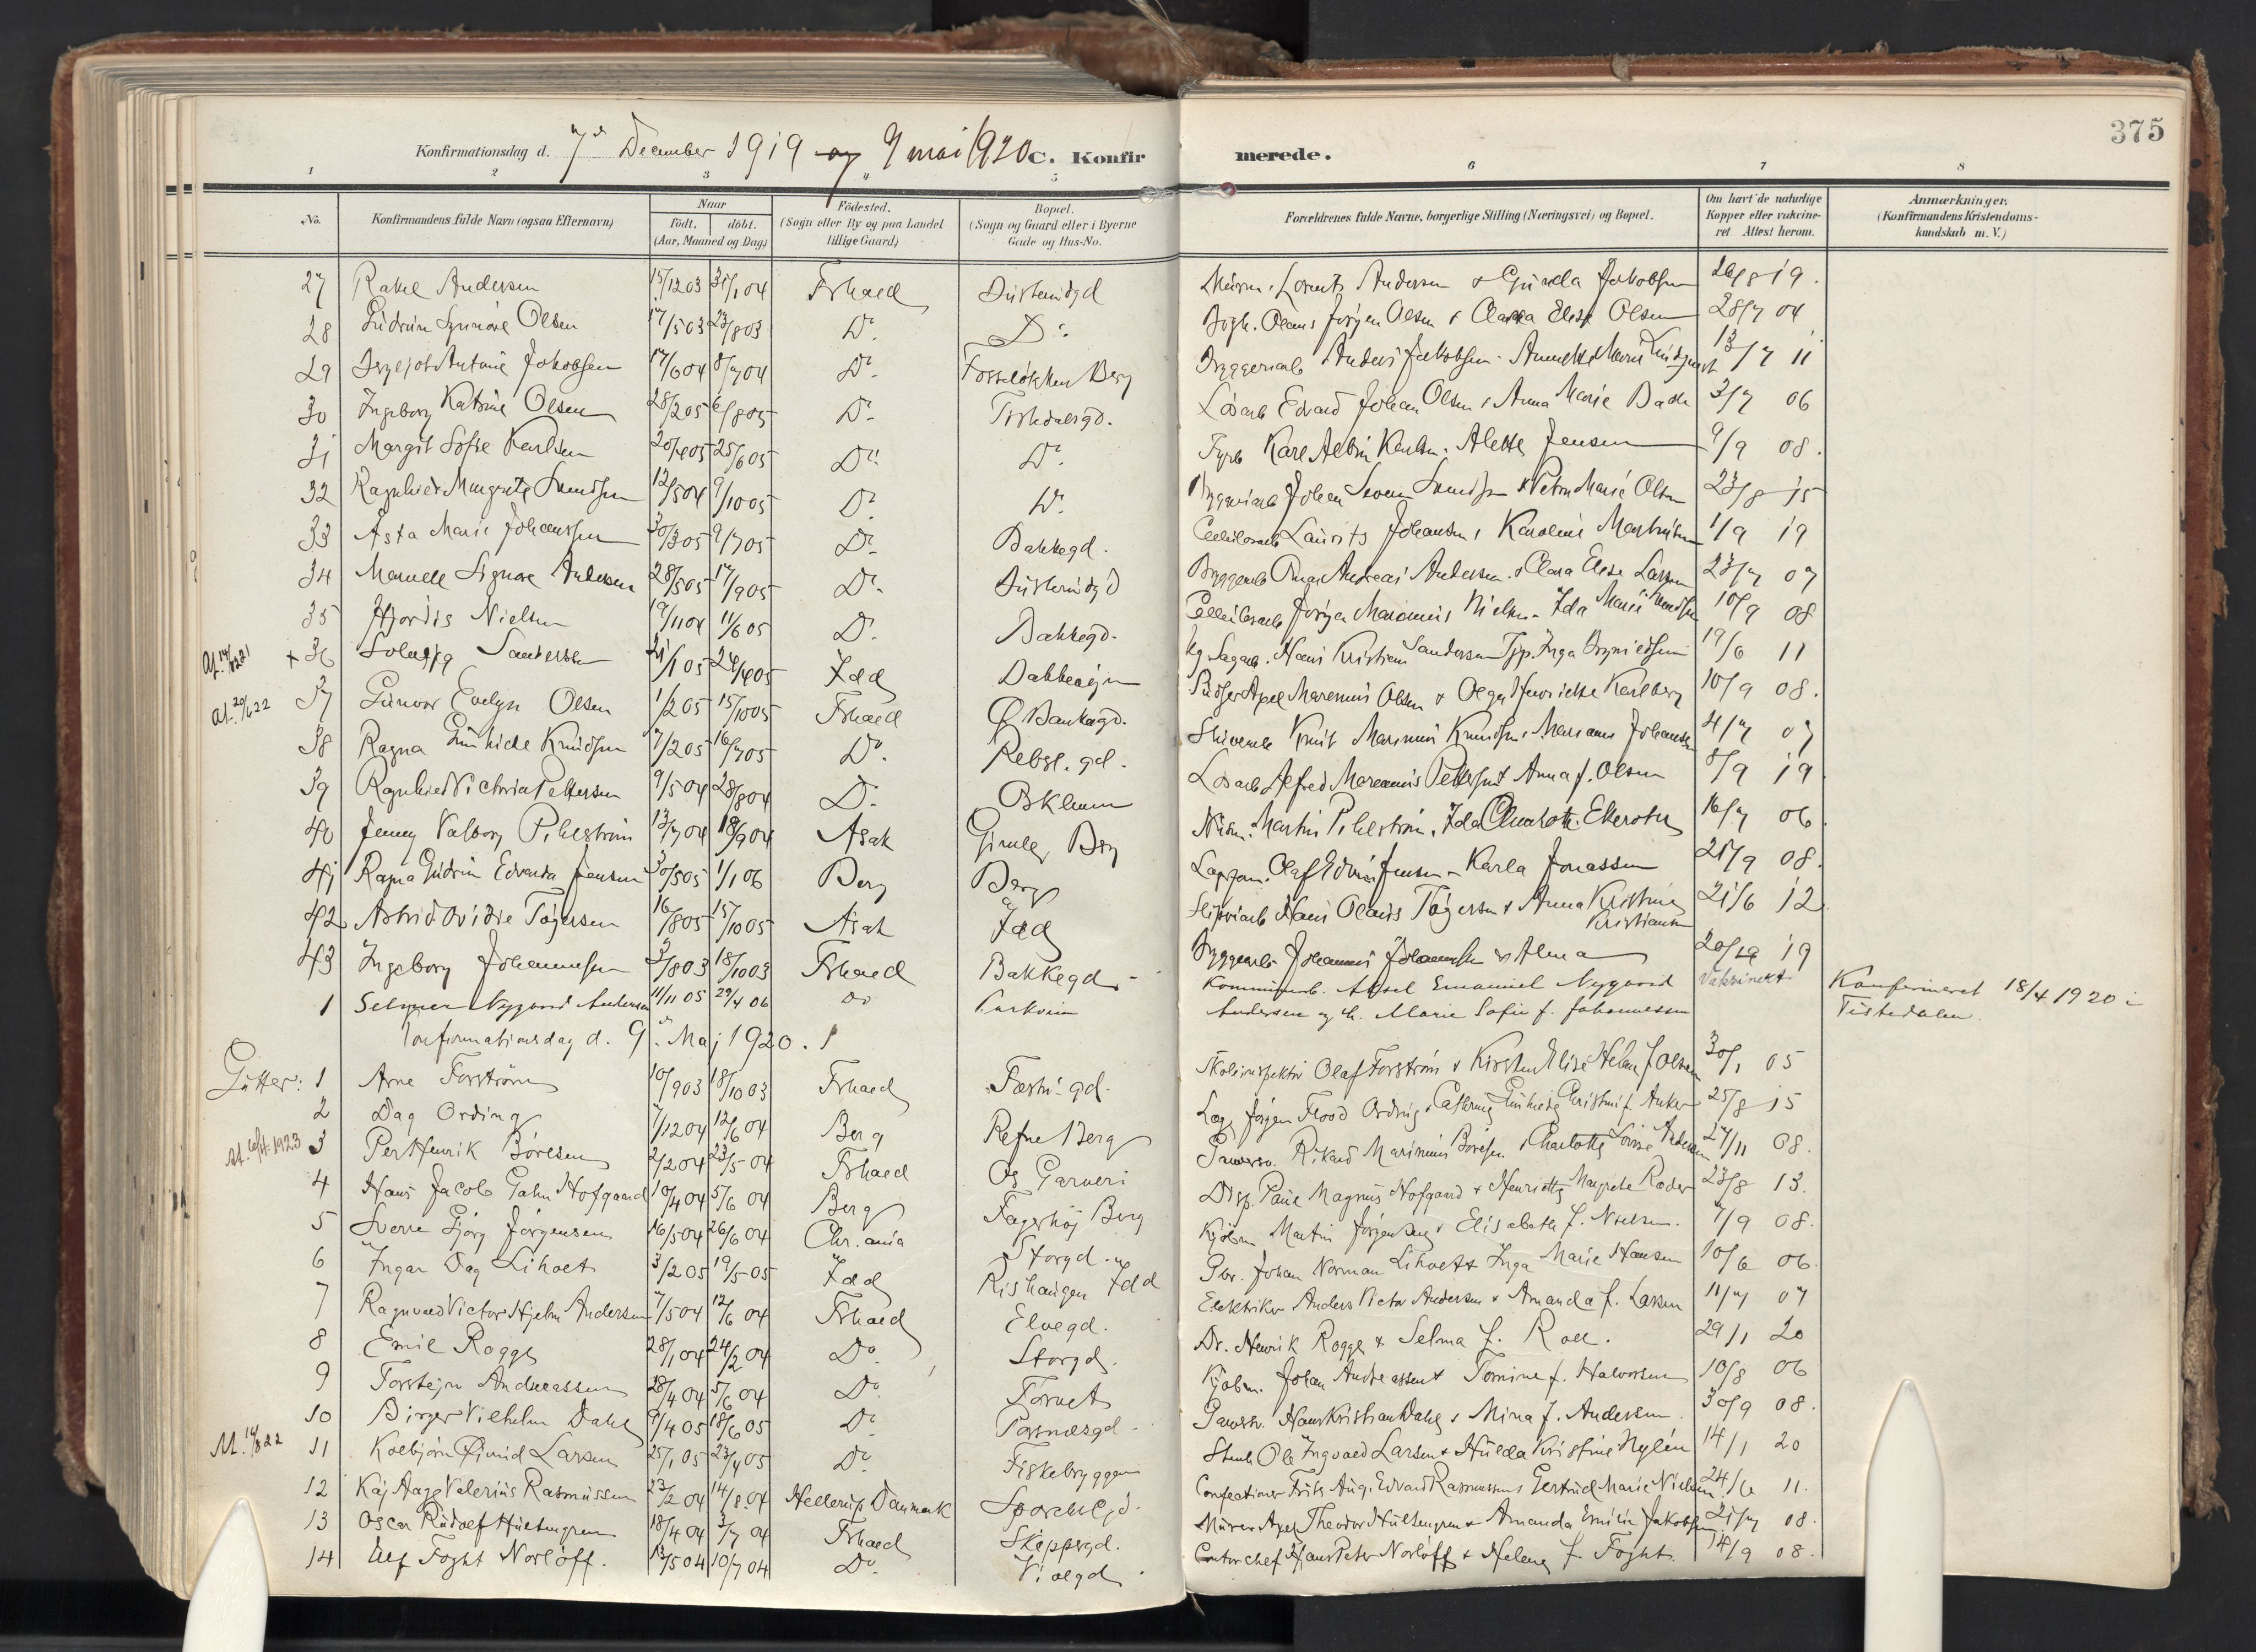 375
Konfirmationsdag d. 7de December 1919 og 9 mai 1920 C. Konfirmerede.
1 2 3 4 5 6 7 8
No. Konfirmandens fulde Navn (ogsaa Efternavn) Naar født. døbt. (Aar, Maaned og Dag) Fødested. (Sogn eller By og paa Landet tillige Gaard) Bopæl. (Sogn og Gaard eller i Byerne Gade og Hus-No. Forældrenes fulde Navne, borgerlige Stilling (Næringsvei) og Bopæl. Om havt de naturlige Kopper eller vaksineret Attest herom. Anmærkninger. (Konfirmandens Kristendomskundskab m. V.)
27 Rakel Andersen 15/12 03 31/1 04 Frhald Lorents Andersen & Gunda Jakobsen 26/8 19.
28 Gudrun Synnöve Olsen 17/5 03 23/8 03 Do. Do. Olaus Jørgen Olsen & Clara Elise Olsen 28/7 04
29 Antonie Jakobsen 17/6 04 8/7 04 Do. Fosseløkken Berg Anders Jakobsen 13/7 11
30 Ingeborg Katrine Olsen 28/2 05 6/8 05 Do. Tistedalsgd. Løsarb Edvard Johan Olsen & Anna Marie Bade 3/7 06
31 Margit Sofie Karlsen 20/4 05 25/6 05 Do. Do. Karl Albin Karlsen & Alette Jensen 9/9 08.
32 Ragnhild Margrete Svendsen 12/5 04 9/10 05 Do. Do. Johan Svendsen & Petra Marie Olsen 23/8 15
33 Asta Marie Johanssen 30/3 05 9/7 05 Do. Bakkegd. Laurits Johansen & Karoline Martinsen 1/9 19
34 Signore Andersen 28/5 05 17/9 05 Do. Andreas Andersen & Clara Elise Larsen 23/7 07
35 Hjørdis Nielsen 19/11 04 11/6 05 Do. Bakkegd. Jørgen Marinius Nielsen & Ida Marie Knudsen 10/9 08
At. 14/2 21 + 36 Solveig Sandersen 21/1 05 24/4 05 Idd Hans Kristian Sandersen Inga 19/6 11
At. 20/6 22 37 Gunvor Evelyn Olsen 1/2 05 15/10 05 Frhald Ø Bankegd. Axel Marenius Olsen & Olga Henriette Karlberg 10/9 08.
38 Ragna Gunhilde Knudsen 7/2 05 16/7 05 Do. Rebsl. gd. Knut Marinius Knudsen & Mariane Johansen 4/7 07
39 Ragnhild Victoria Pettersen 9/5 04 28/8 04 Do. Løsarb Alfred Marenius Pettersen & Anna f. Olsen 8/9 19
40 Jenny Valborg Pihlström 13/7 04 18/9 04 Asak Gimle, Berg Martin Pihlström & Ida Charlotte 16/7 06
41 Ragna Gudrun Edvarda Jensen 30/5 05 1/1 06 Berg Berg Olaf Edvin Jensen & Karla Jonassen 21/9 08.
42 Astrid Ovidie Tøgersen 16/8 05 15/10 05 Asak Idd Hans Olaus Tøgersen & Anna Kristine Kristiansen 21/6 12
43 Ingeborg Johannesen 3/8 03 18/10 03 Frhald Bakkegd. Johannes Johannesen & Alma 20/12 19
1 Selmer Nygaard Andersen 11/11 05 29/4 06 do Aksel Emanuel Nygaard Andersen og h. Marie Sofie f. Johannessen Vaksinert Konfirmeret 18/4 1920 i Tistedalen
Konfirmationsdag d. 9de Maj 1920.
Gutter: 1 Arne Forström 10/9 03 18/10 03 Frhald Skoleinspektør Olaf Forström & Kirsten Elise Helene f. Olsen 30/1 05
2 Dag Ording 7/12 04 12/6 04 Berg Refne Berg Læge Jørgen Flood Ording & Cathrine Christine f. Anker 25/8 15
At. 1923 3 Per Henrik Børesen 2/2 04 23/5 04 Frhald Os Garveri Rikard Marinius Børesen & Charlotte Lovise Andersen 27/11 08.
4 Hans Jacob Gahn Hofgaard 10/4 04 5/6 04 Berg Fagerhøj Berg Disp. Paul Magnus Hofgaard & Henriette Margrete Roder 23/8 13.
5 Sverre Jørgensen 16/5 04 26/6 04 Chr.ania Storgd. Kjøbm Martin Jørgensen & Elisabeth f. Nielsen. 7/9 08.
6 Ingar Dag Lihvet 3/2 05 19/5 05 Idd Rishaugen Idd Johan Norman Lihvet & Inga Marie Hansen 10/6 06.
7 Ragnvald Victor Hjelm Andersen 7/5 04 12/6 04 Frhald Elvegd. Elektriker Anders Victor Andersen & Amanda f. Larsen 11/7 07
8 Emil Rogge 28/1 04 24/2 04 Do. Storgd. Dr. Henrik Rogge & Selma f. Roll. 29/1 20
9 Torstejn Andreassen 28/4 04 5/6 04 Do. Torvet Kjøbm. Johan Andreassen & Tomine f. Halvorsen 10/8 06
10 Birger Vilhelm Dahl 9/4 05 18/6 05 Do. Hans Kristian Dahl & Mina f. Andersen. 30/9 08.
At. 22 11 Kolbjørn Øivind Larsen 25/1 05 23/4 05 Do. Fiskebryggen Ole Ingvald Larsen & Hulda Kristine Nylén 14/1 20
12 Kaj Aage Valerius Rasmussen 23/2 04 14/8 04 Hellerup Danmark Frits Aug. Edvard Rasmussen & Gertrud Marie Nielsen 24/6 11.
13 Oscar Rudolf Hultengren 18/4 04 3/7 04 Frhald Skippergd. Murer Axel Theodor Hultengren & Amanda Emilie Jakobsen 21/7 08.
14 Ulf Foght Norløff. 13/5 04 10/7 04 Do. Violgd Contorchef Hans Peter Norløff & Helene f. Foght 14/9 08.